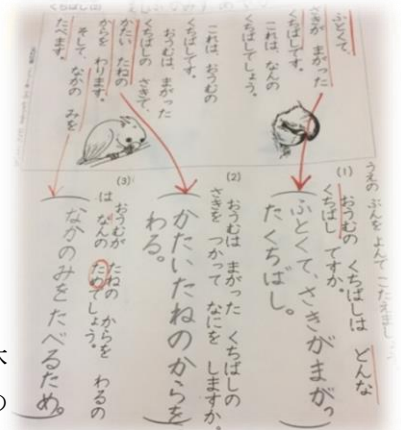 くちばし
ふとくて、
さきが まがった
くちばしです。
これは なんの
くちばしでしょう。
これは、おうむの
くちばしです。
おうむは まがった
くちばしの さきで、
かたい たねの
からを わります。
そして、なかの みを
たべます。
うえの ぶんを よんで こたえましょう
(1)
おうむの くちばしは どんな
くちばし ですか。
ふとくて、さきがまがっ
たくちばし。
(2)
おうむは まがった くちばしの
さきを つかって なにを しますか。
かたいたねのからを
わる。
(3)
おうむが たねの からを わるの
は なんの ためでしょう。
なかのみをたべるため。